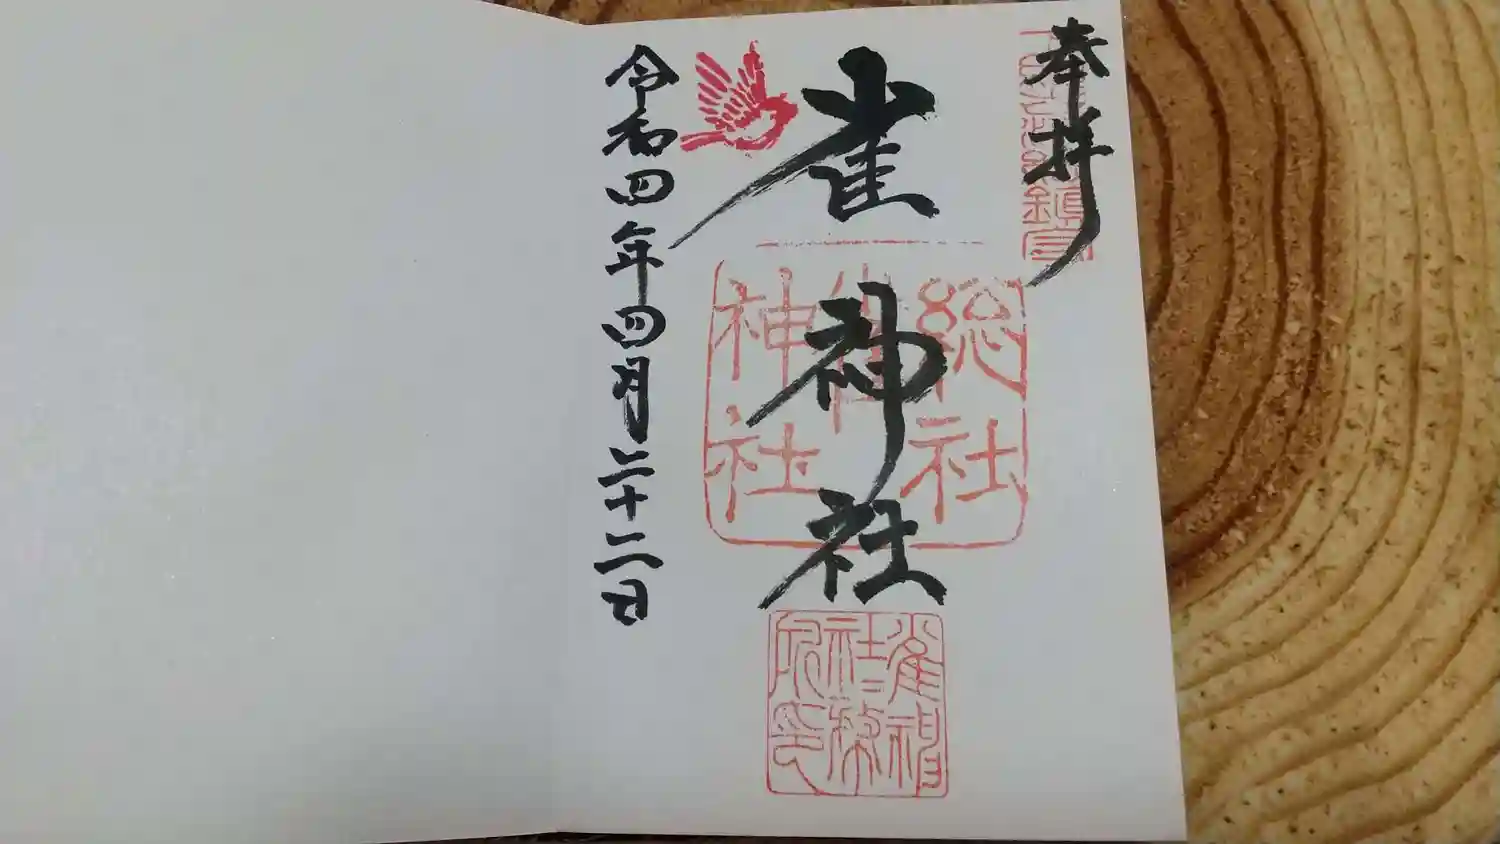 奉拝
雀神社
総社
雀
神社
雀神
社務
令和四年四月二十二日